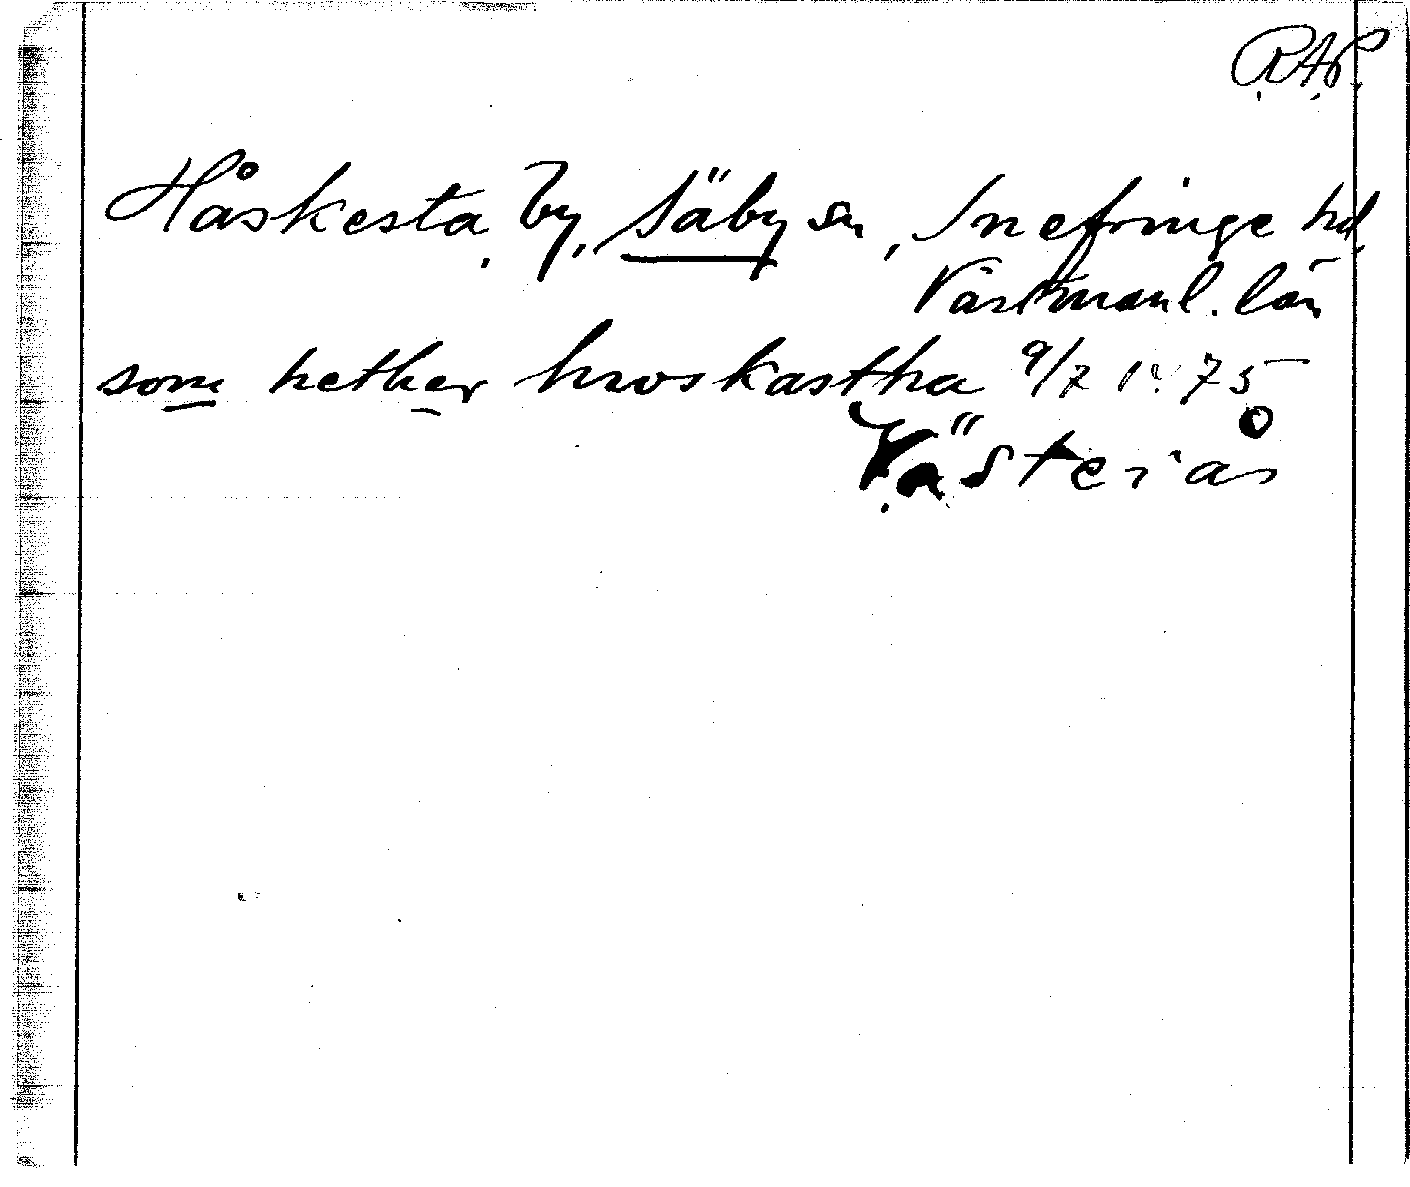 R.A.P.
Håskesta, by, Säby sn, Snefringe hd,
Västmanl. län
som hether hroskastha 9/7 1375
Västerås